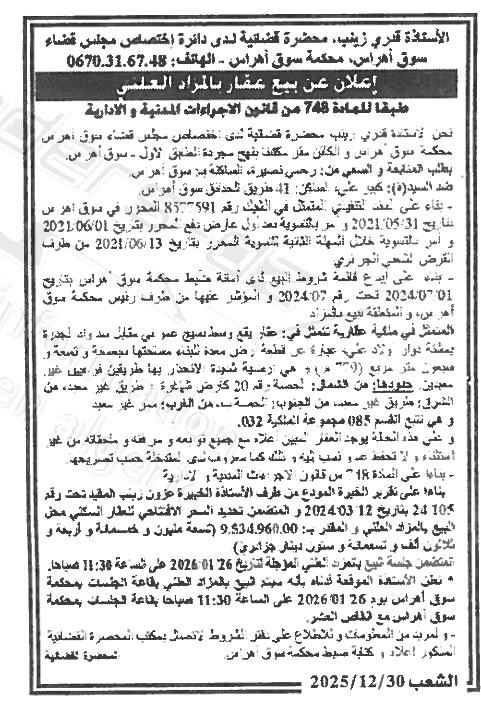 الأستاذة قدري زينب، محضرة قضائية لدى دائرة إختصاص مجلس قضاء
سوق أهراس، محكمة سوق أهراس - الهاتف: 0670.31.67.48
إعلان عن بيع عقار بالمزاد العلني
طبقا للمادة 748 من قانون الاجراءات المدنية و الادارية
نحن الأستاذة قدري زينب محضرة قضائية لدى اختصاص مجلس قضاء سوق أهراس
محكمة سوق أهراس و الكائن مقر مكتبنا بنهج سجردة الطابق الأول - سوق أهراس.
بطلب المتابعة و السعي من: رحسي نصيرة، الساكنة بـ سوق أهراس
ضد السيد(ة): كبير علي، الساكن: 41 طريق الحدائق سوق أهراس
- بناء على السند التنفيذي المتمثل في الشيك رقم 8577591 المحرر في سوق أهراس
بتاريخ 2021/05/31 و أمر بالتسوية بعد أول عارض دفع المحرر بتاريخ 2021/06/01
و أمر بالتسوية خلال المهلة الثانية للتسوية المحرر بتاريخ 2021/06/13 من طرف
القرض الشعبي الجزائري
- بناء على إيداع قائمة شروط البيع لدى أمانة ضبط محكمة سوق أهراس بتاريخ
2024/07/01 تحت رقم 2024/07 و المؤشر عليها من طرف رئيس محكمة سوق
أهراس، و المتعلقة ببيع بالمزاد
المتمثل في ملكية عقارية تتمثل في: عقار يقع وسط نسيج عمومي مقابل سد واد الجدرة
بمشتة دوار ولاد علي، عبارة عن قطعة أرض معدة للبناء مساحتها سبعمئة و تسعة و
سبعون متر مربع (779 م²) هي أرضية شديدة الانحدار بها طريقين فرعيين غير
معبدين. حدودها: من الشمال: الحصة رقم 20 كارش شهادة + طريق غير معبد، من
الشرق: طريق غير معبد، من الجنوب: الحصة ب، من الغرب: ممر غير معبد
و هي تتبع القسم 085 مجموعة الملكية 032.
و على هذه الحالة يوجد العقار المبين أعلاه مع جميع توابعه و مرافقه و ملحقاته من غير
استثناء و لا تحفظ
- بناءا على المادة 748 من قانون الإجراءات المدنية و الإدارية
بناءا على تقرير الخبرة المودع من طرف الأستاذة الخبيرة عزون زينب المقيد تحت رقم
24/105 بتاريخ 2024/03/12 و المتضمن تحديد السعر الافتتاحي للعقار السكني محل
البيع بالمزاد العلني و المقدر بـ: 9.534.960.00 (تسعة مليون و خمسمائة و أربعة و
ثلاثون ألف و تسعمائة و ستون دينار جزائري)
المتضمن جلسة البيع بالمزاد العلني المؤجلة لتاريخ 2026/01/26 على الساعة 11:30 صباحا.
* نعلن الأستاذة الموقعة أدناه بأنه سيتم البيع بالمزاد العلني بقاعة الجلسات بمحكمة
سوق أهراس يوم 2026/01/26 على الساعة 11:30 صباحا بقاعة الجلسات بمحكمة
سوق أهراس مع انقاص العشر.
- و لمزيد من المعلومات و للاطلاع على دفتر الشروط الاتصال بمكتب المحضرة القضائية
المذكور أعلاه و كتابة ضبط محكمة سوق أهراس. المحضرة القضائية
الشعب 2025/12/30